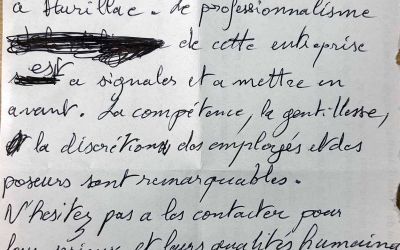 a Aurillac. de professionnalisme
de cette entreprise
est a signaler et a mettre en
avant. La compétence, la gentillesse,
la discrétion des employés et des
poseurs sont remarquables.
N'hesitez pas a les contacter pour
leur sérieux et leurs qualités humaine